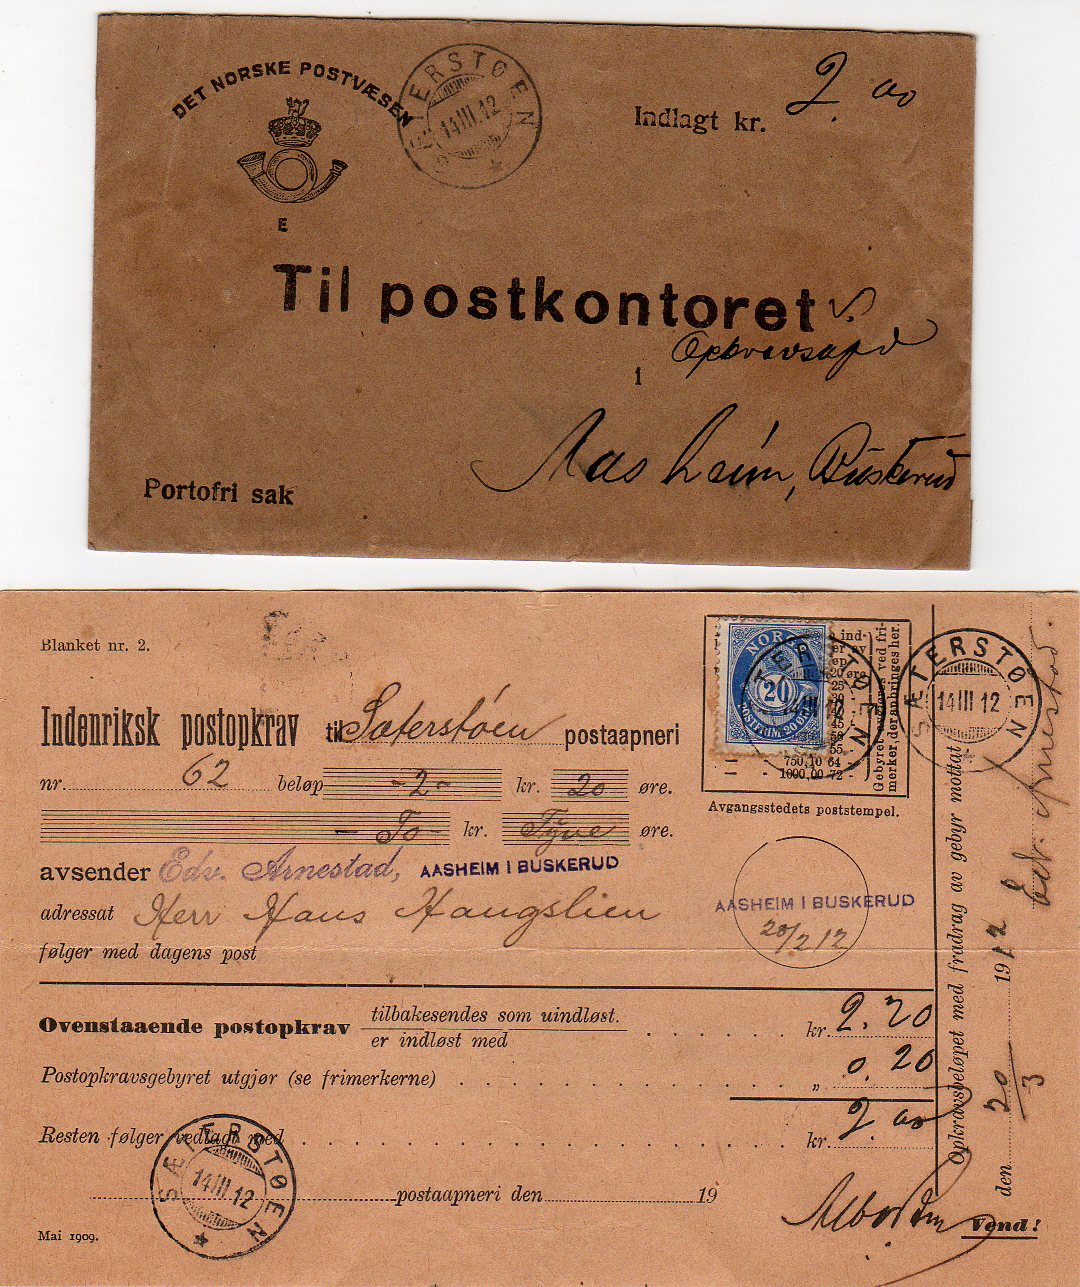 DET NORSKE POSTVÆSEN
SÆTERSTØEN
14 III 12
Indlagt kr. 2. 00
E
Til postkontoret s.
Opkravsafd
i
Aasheim, Buskerud
Portofri sak
Blanket nr. 2.
Indenriksk postopkrav til Sæterstøen postaapneri
nr. 62 beløp -2- kr. 20 øre.
- To - kr. Tyve øre.
avsender Edv. Arnestad, AASHEIM I BUSKERUD
adressat Herr Hans Haugslien
følger med dagens post
NORGE
20
POSTFRIM. 20 ØRE
750,10 64
1000,00 72
Gebyret avgjøres ved fri-
merker, der anbringes her.
Avgangsstedets poststempel.
SÆTERSTØEN
14 III 12
SÆTERSTØEN
14 III 12
AASHEIM I BUSKERUD
20/2 12
Ovenstaaende postopkrav tilbakesendes som uindløst.
er indløst med kr. 2.20
Postopkravsgebyret utgjør (se frimerkerne) „ 0.20
Resten følger vedlagt med kr. 2 00
SÆTERSTØEN
14 III 12
postaapneri den 19
Mai 1909.
Vend!
Opkravsbeløpet med fradrag av gebyr mottat
den 20/3 1912
Edv. Arnestad.